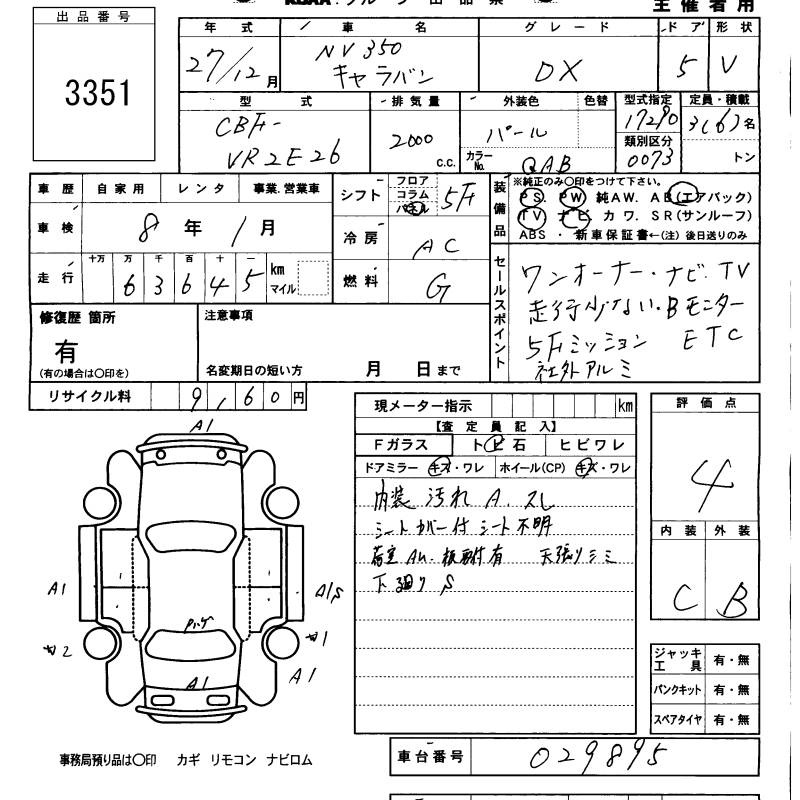 主催者用
出品番号
3351
年式 車名 グレード ドア 形状
27/12月 NV350 キャラバン DX 5 V
型式 排気量 外装色 色替 型式指定 定員・積載
CBF- VR2E26 2000 c.c. パール 17290 3(6)名
カラーNo. QAB 類別区分 0073 トン
車歴 自家用 レンタ 事業.営業車
車検 8年1月
走行 十万 万 千 百 十 一
63645 km マイル
シフト フロア コラム パネル 5F
冷房 AC
燃料 G
装備品 ※純正のみ〇印をつけて下さい。
PS. PW 純AW. AB(エアバック)
TV ナビ. カワ. SR(サンルーフ)
ABS ・ 新車保証書←(注) 後日送りのみ
セールスポイント
ワンオーナー・ナビ. TV
走行少ない・Bモニター
5Fミッション ETC
社外アルミ
修復歴 箇所
有
(有の場合は〇印を)
注意事項
名変期日の短い方 月 日まで
リサイクル料 9,160円
現メーター指示 km
【査定員記入】
Fガラス トビ石 ヒビワレ
ドアミラー キズ・ワレ ホイール(CP) キズ・ワレ
内装 汚れ A. スレ
シートカバー付 シート不明
荷室 AU. 板取付有 天張りシミ
下廻り S
評価点
4
内装 外装
C B
A1
A1
A1
A1
ジャッキ工具 有・無
パンクキット 有・無
スペアタイヤ 有・無
事務局預り品は〇印 カギ リモコン ナビロム
車台番号 029895